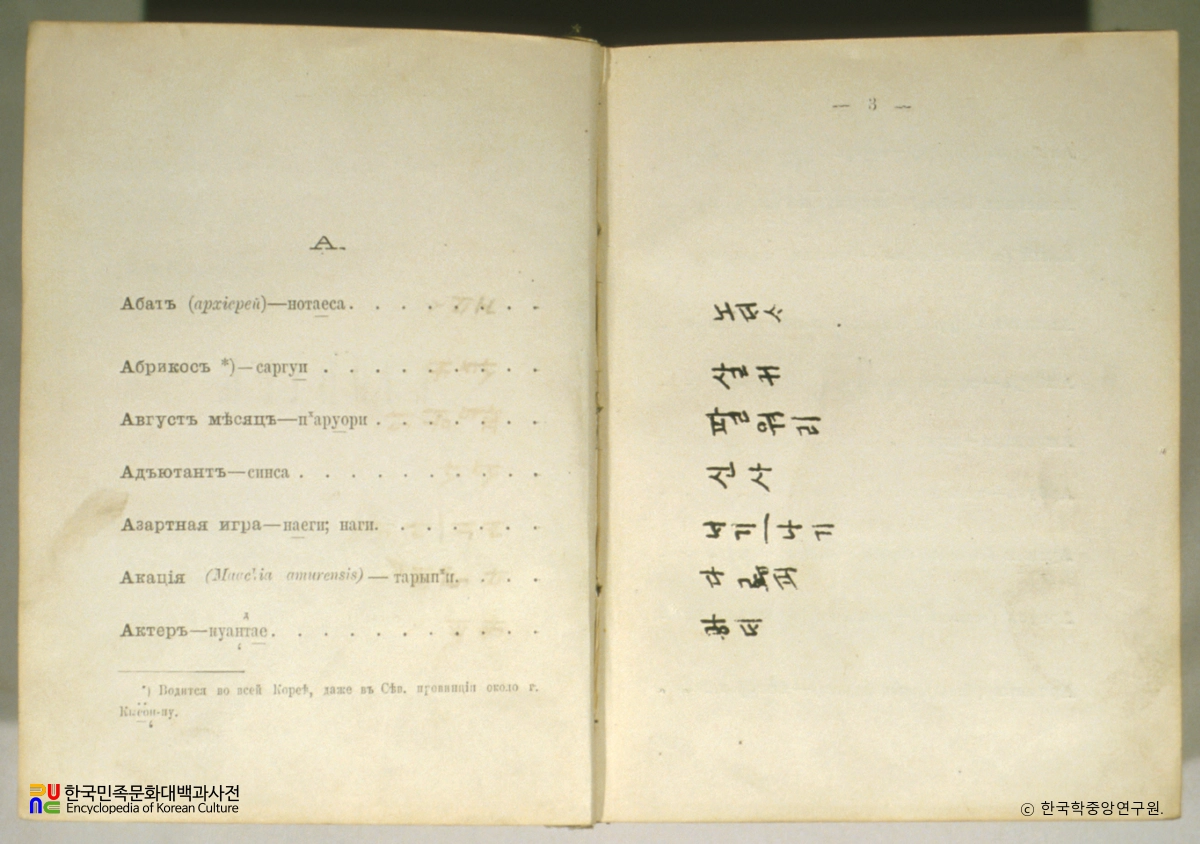 А.
Абатъ (архіерей)—нотаеса. . . . . . . . .
Абрикосъ *)—саргуи . . . . . . . . .
Августъ мѣсяцъ—пˣаруори . . . . . . .
Адъютантъ—синса . . . . . . . . . .
Азартная игра—наеги; наги. . . . . . .
Акація amurensis)—тарыпˣи. . . .
Актеръ— . . . . . . . . . . .
*) Водится во всей Кореѣ, даже въ Сѣв. провинціи около г.
— 3 —
살
팔워리
신사
나기
한국민족문화대백과사전
Encyclopedia of Korean Culture
ⓒ 한국학중앙연구원.